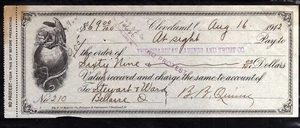 $69 00/100 Cleveland, O. Aug 16 1912
At sight Pay to
the order of
Sixty Nine 00/100 Dollars
Value received and charge the same to account of
To Stewart & Ward
No. 210 Bellaire O
B. B. Quinn